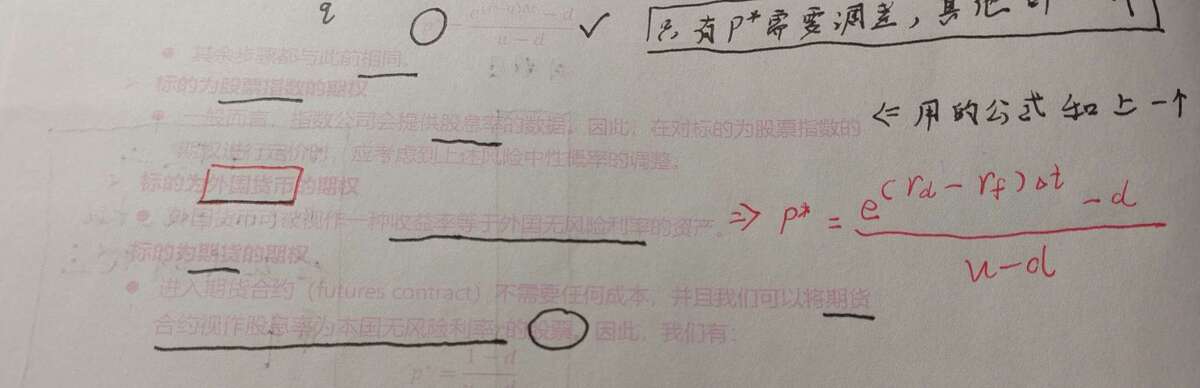 q
只有P*需要调查,其他
u-d
● 其余步骤都与此前相同。
➢ 标的为股票指数的期权
● 一般而言，指数公司会提供股息率的数据。因此，在对标的为股票指数的
期权进行定价时，应考虑到上述风险中性概率的调整。
<= 用的公式和上一个
➢ 标的为外国货币的期权
● 外国货币可被视作一种收益率等于外国无风险利率的资产。
=> P* = e^(rd-rf)Δt -d
u-d
➢ 标的为期货的期权
● 进入期货合约（futures contract）不需要任何成本，并且我们可以将期货
合约视作股息率为本国无风险利率 的股票。因此，我们有：
p* = 1-d